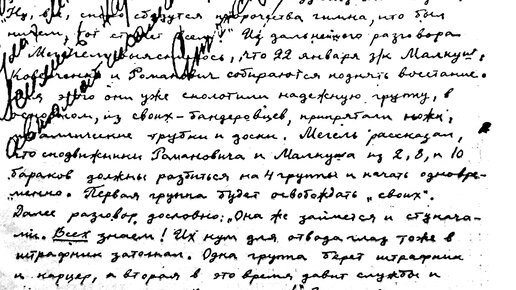 Ну, вот, скоро сбудутся пророчества гимна, что был
ничем, тот станет всем!" Из дальнейшего разговора
с Мегелем выяснилось, что 22 января з/к Малкуш,
Ковальченко и Романович собираются поднять восстание.
Для этого они уже сколотили надежную группу, в
основном, из своих-бандеровцев, припрятали ножи,
металлические трубки и доски. Мегель рассказал,
что сподвижники Романовича и Малкуша из 2, 8, и 10
бараков должны разбиться на 4 группы и начать одновре-
менно. Первая группа будет освобождать „своих".
Далее разговор дословно: „Она же займется и стукача-
ми. Всех знаем! Их кум для отвода глаз тоже в
штрафник затолкал. Одна группа берет штрафник
и карцер, а вторая в это время давит службы и